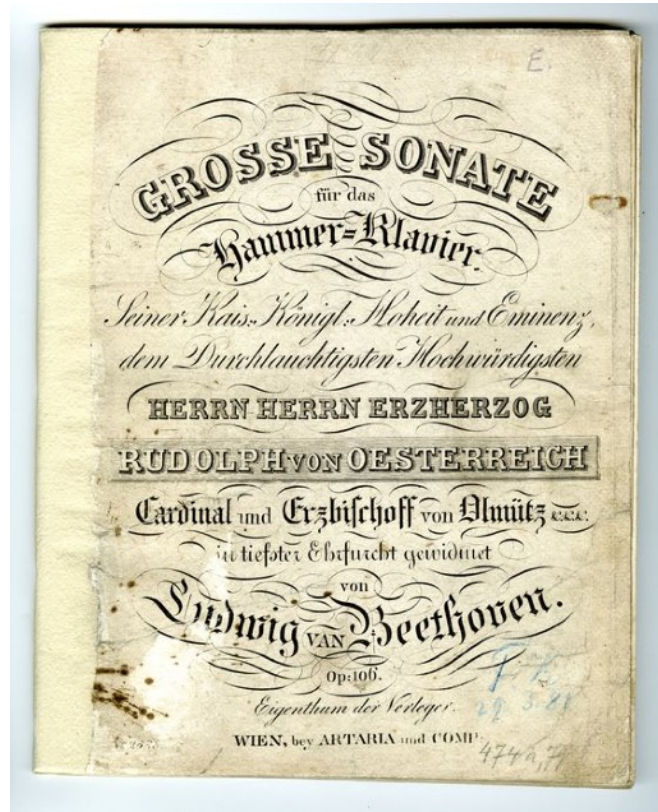 E.
GROSSE SONATE
für das
Hammer=Klavier.
Seiner Kais: Königl: Hoheit und Eminenz,
dem Durchlauchtigsten Hochwürdigsten
HERRN HERRN ERZHERZOG
RUDOLPH VON OESTERREICH
Cardinal und Erzbischoff von Olmütz &.&.&.
in tiefster Ehrfurcht gewidmet
von
Ludwig VAN Beethoven.
Op: 106.
Eigenthum der Verleger.
29.3.81
WIEN, bey ARTARIA und COMP: